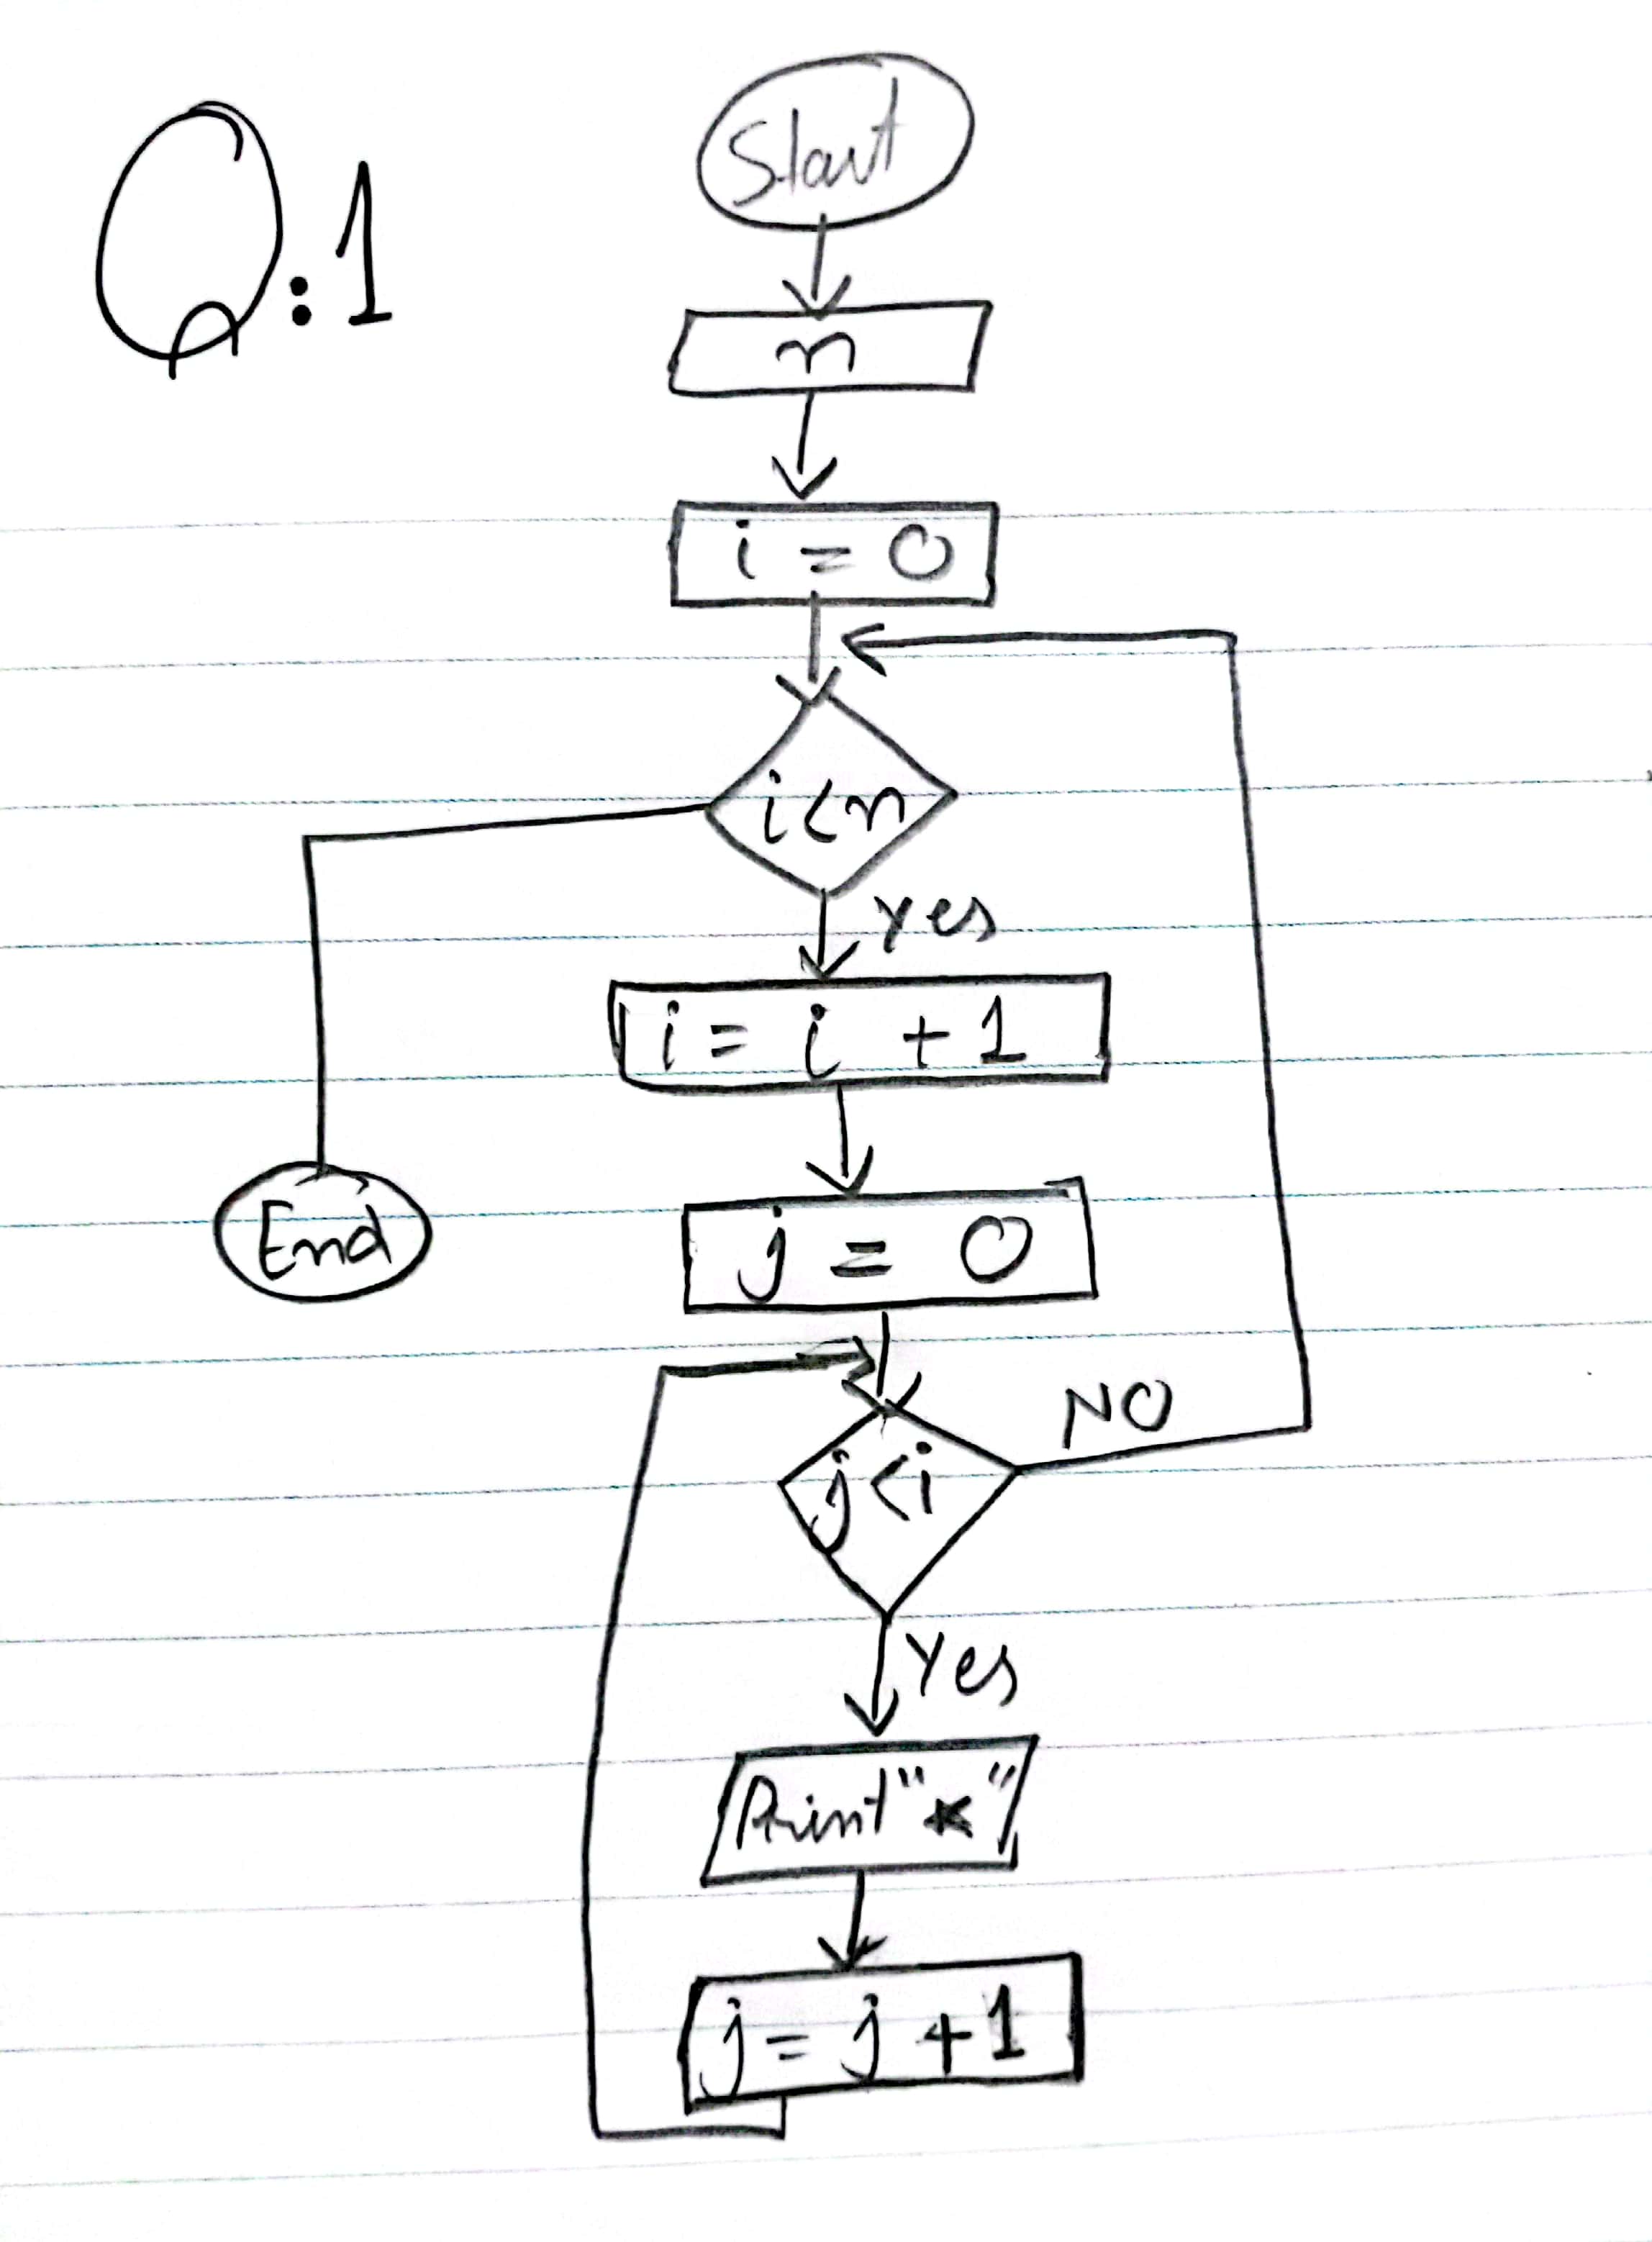 Q:1
Start
n
i = 0
i<n
Yes
i = i + 1
j = 0
End
j<i
NO
Yes
Print "*"
j = j + 1